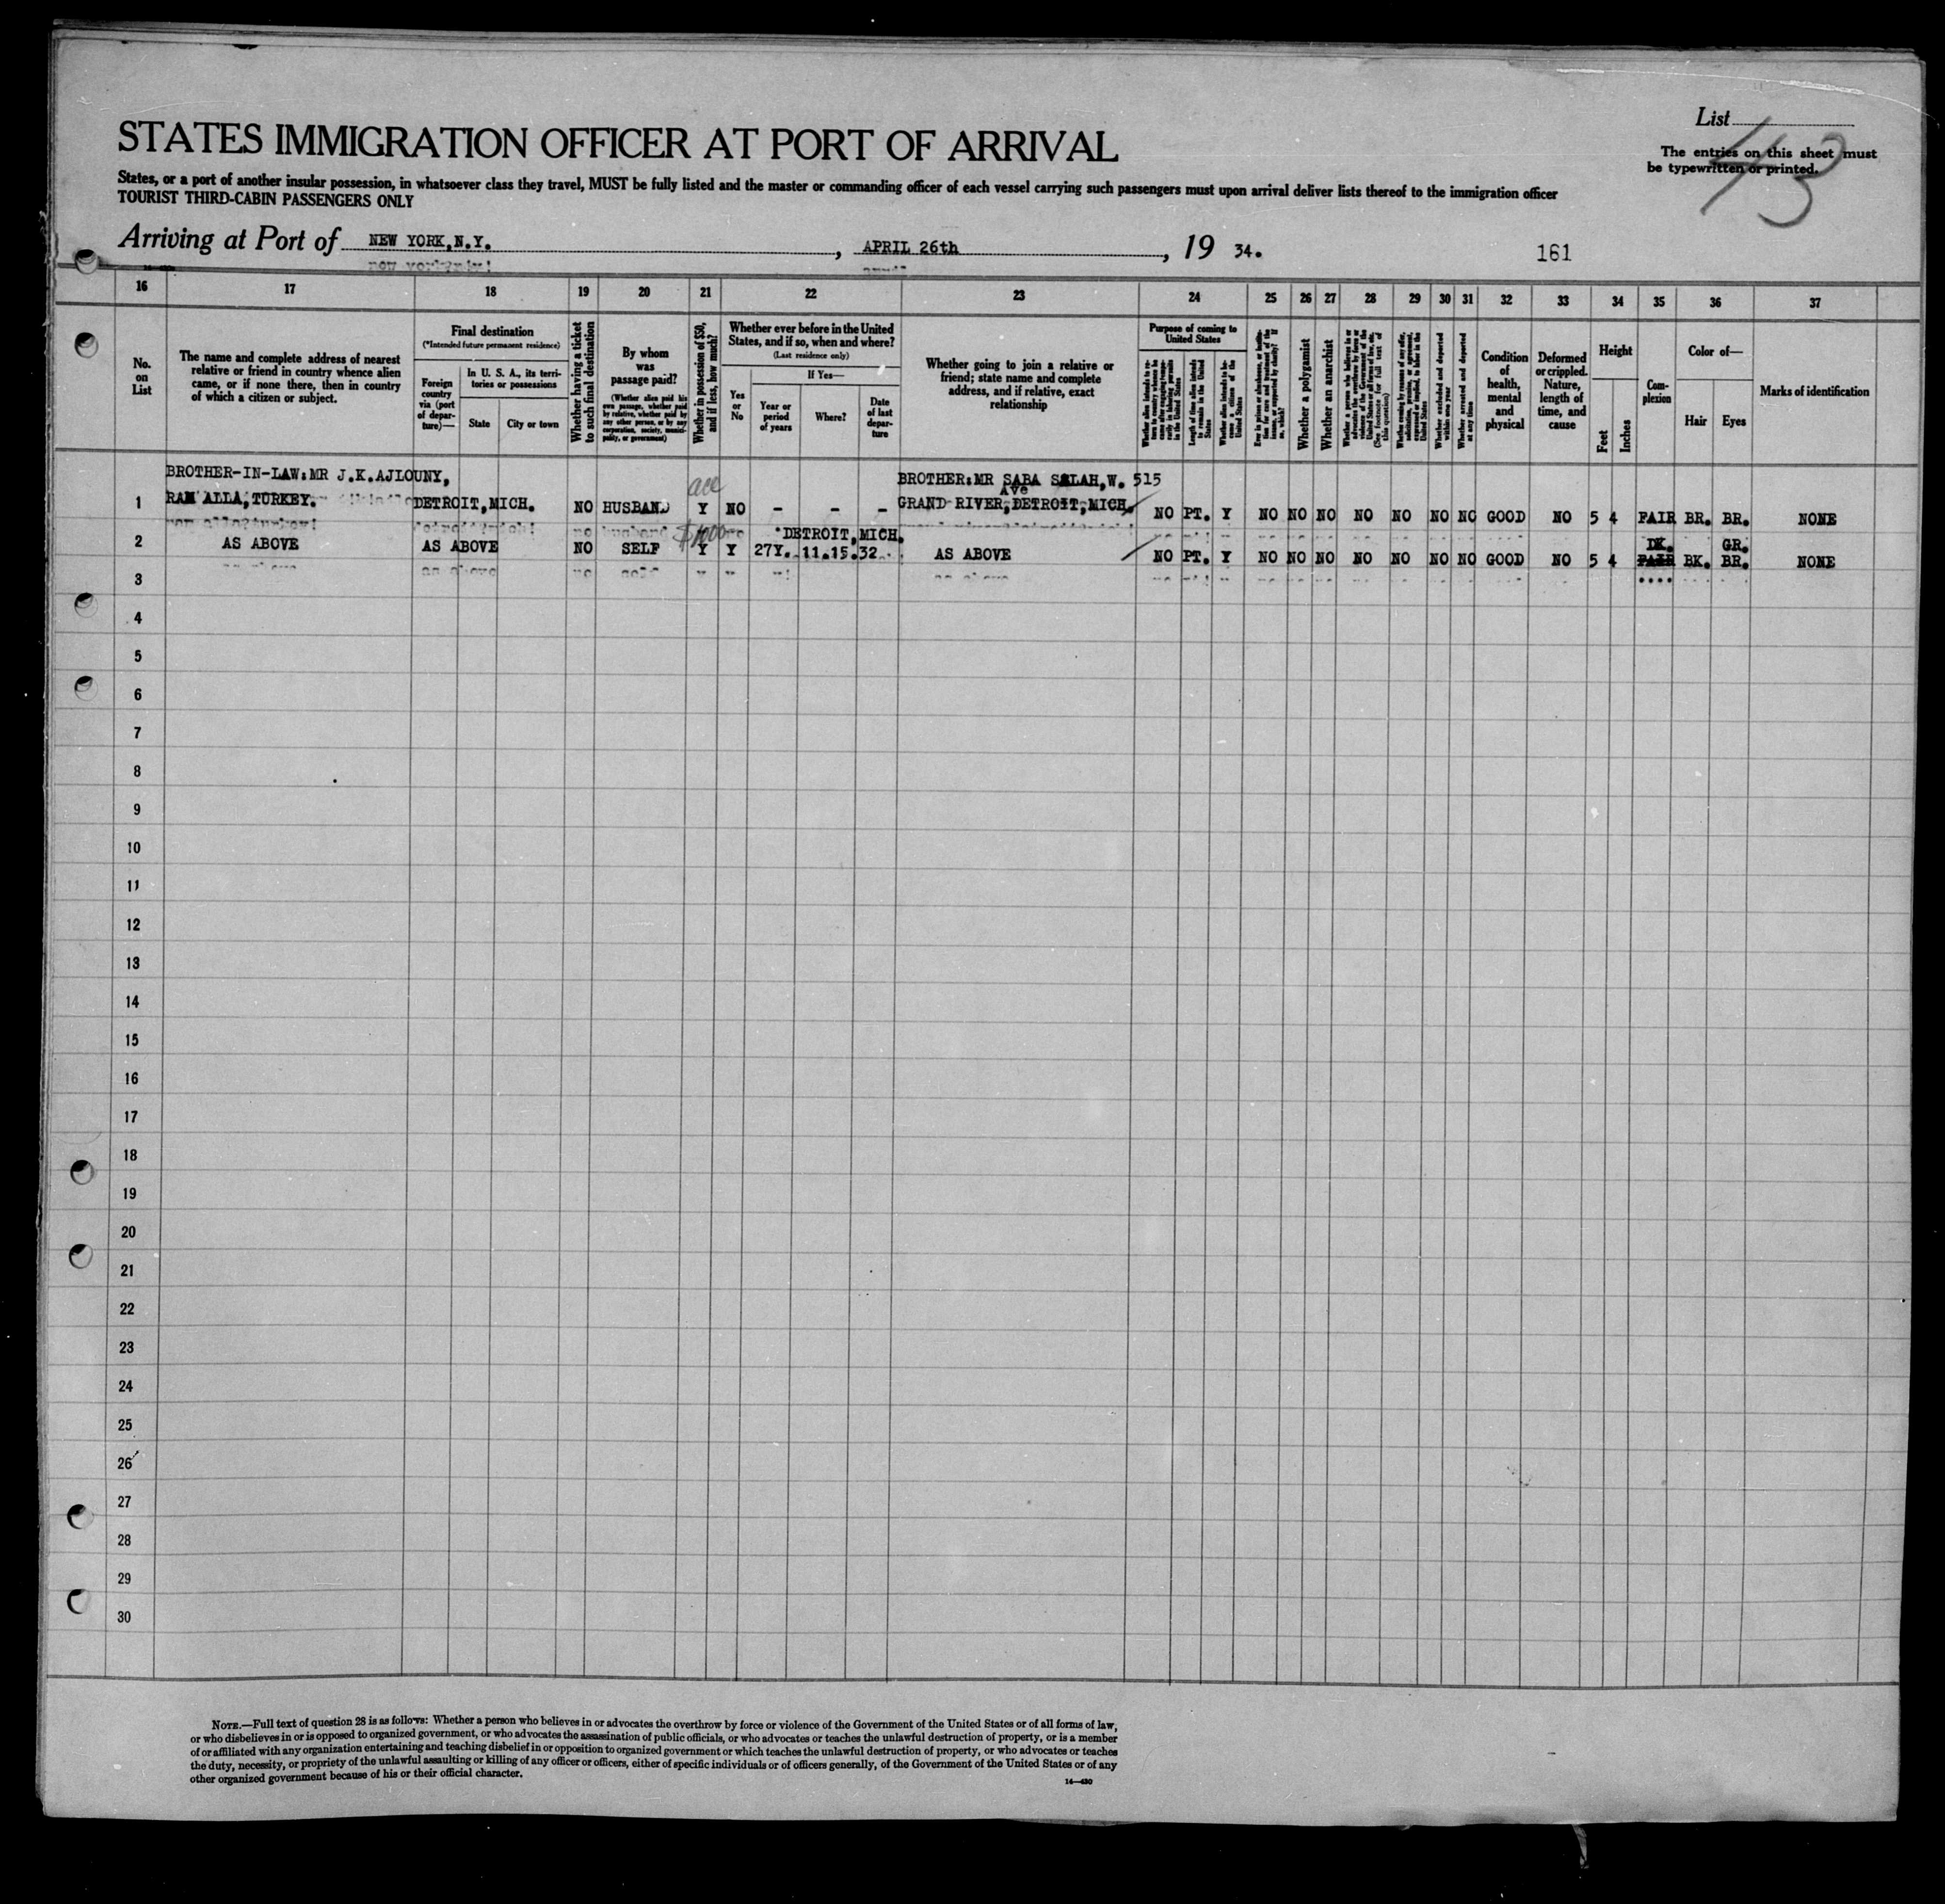 List
43
The entries on this sheet must
be typewritten or printed.
STATES IMMIGRATION OFFICER AT PORT OF ARRIVAL
States, or a port of another insular possession, in whatsoever class they travel, MUST be fully listed and the master or commanding officer of each vessel carrying such passengers must upon arrival deliver lists thereof to the immigration officer
TOURIST THIRD-CABIN PASSENGERS ONLY
Arriving at Port of NEW YORK,N.Y. , APRIL 26th , 19 34.
161
16 17 18 19 20 21 22 23 24 25 26 27 28 29 30 31 32 33 34 35 36 37
No. on List
The name and complete address of nearest relative or friend in country whence alien came, or if none there, then in country of which a citizen or subject.
Final destination
(*Intended future permanent residence)
Foreign country via (port of departure)—
In U. S. A., its territories or possessions
State
City or town
Whether having a ticket to such final destination
By whom was passage paid?
(Whether alien paid his own passage, whether paid by relative, whether paid by any other person, or by any corporation, society, municipality, or government)
Whether in possession of $50, and if less, how much?
Whether ever before in the United States, and if so, when and where?
(Last residence only)
Yes or No
If Yes—
Year or period of years
Where?
Date of last departure
Whether going to join a relative or friend; state name and complete address, and if relative, exact relationship
Purpose of coming to United States
Length of time alien intends to remain in the United States
Whether alien intends to become a citizen of the United States
Whether a polygamist
Whether an anarchist
Whether excluded and deported within one year
Whether arrested and deported at any time
Condition of health, mental and physical
Deformed or crippled. Nature, length of time, and cause
Height
Feet
Inches
Complexion
Color of—
Hair
Eyes
Marks of identification
BROTHER-IN-LAW:MR J.K.AJLOUNY, BROTHER:MR SABA SALAH,W. 515
acc
Ave
1 RAM ALLA,TURKEY. DETROIT,MICH. NO HUSBAND Y NO - - - GRAND RIVER,DETROIT,MICH. NO PT. Y NO NO NO NO NO NO NO GOOD NO 5 4 FAIR BR. BR. NONE
$1000 *DETROIT,MICH. DK. GR.
2 AS ABOVE AS ABOVE NO SELF Y Y 27Y. 11.15.32. AS ABOVE NO PT. Y NO NO NO NO NO NO NO GOOD NO 5 4 FAIR BK. BR. NONE
3
4
5
6
7
8
9
10
11
12
13
14
15
16
17
18
19
20
21
22
23
24
25
26
27
28
29
30
NOTE.—Full text of question 28 is as follows: Whether a person who believes in or advocates the overthrow by force or violence of the Government of the United States or of all forms of law,
or who disbelieves in or is opposed to organized government, or who advocates the assassination of public officials, or who advocates or teaches the unlawful destruction of property, or is a member
of or affiliated with any organization entertaining and teaching disbelief in or opposition to organized government or which teaches the unlawful destruction of property, or who advocates or teaches
the duty, necessity, or propriety of the unlawful assaulting or killing of any officer or officers, either of specific individuals or of officers generally, of the Government of the United States or of any
other organized government because of his or their official character.
14—430